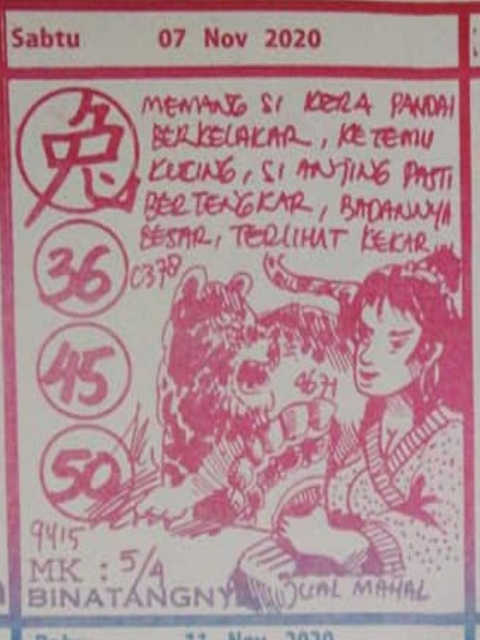 Sabtu 07 Nov 2020
兔
MEMANG SI KERA PANDAI
BERKELAKAR, KETEMU
KUCING, SI ANJING PASTI
BERTENGKAR, BADANNYA
BESAR, TERLIHAT KEKAR
36
0378
45
9671
50
9415
MK : 5/4
BINATANGNY
JUAL MAHAL
11 Nov 2020